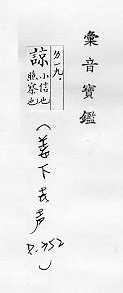 彙音寶鑑
諒
小信也
照察也
(姜下去声
P.352)